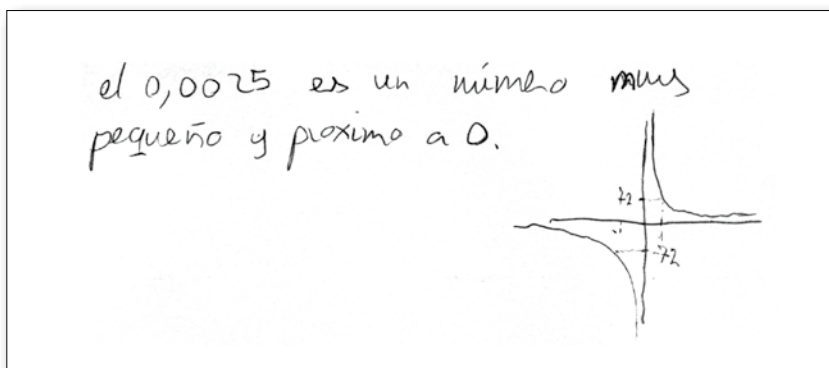 el 0,0025 es un número muy
pequeño y proximo a 0.
72
-72